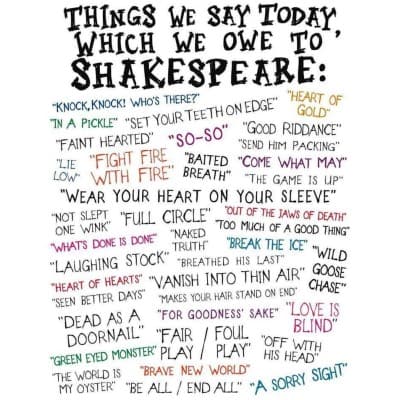 THINGS WE SAY TODAY,
WHICH WE OWE TO
SHAKESPEARE:
"KNOCK, KNOCK! WHO'S THERE?" "HEART OF GOLD"
"IN A PICKLE" "SET YOUR TEETH ON EDGE"
"FAINT HEARTED" "SO-SO" "GOOD RIDDANCE"
"SEND HIM PACKING"
"LIE LOW" "FIGHT FIRE WITH FIRE" "BAITED BREATH" "COME WHAT MAY"
"THE GAME IS UP"
"WEAR YOUR HEART ON YOUR SLEEVE"
"NOT SLEPT ONE WINK" "FULL CIRCLE" "OUT OF THE JAWS OF DEATH"
"NAKED TRUTH" "TOO MUCH OF A GOOD THING"
"WHAT'S DONE IS DONE" "BREAK THE ICE" "WILD GOOSE CHASE"
"LAUGHING STOCK" "BREATHED HIS LAST"
"HEART OF HEARTS" "VANISH INTO THIN AIR"
"SEEN BETTER DAYS" "MAKES YOUR HAIR STAND ON END"
"DEAD AS A DOORNAIL" "FOR GOODNESS' SAKE" "LOVE IS BLIND"
"FAIR PLAY / FOUL PLAY" "OFF WITH HIS HEAD"
"GREEN EYED MONSTER"
"THE WORLD IS MY OYSTER" "BRAVE NEW WORLD"
"BE ALL / END ALL" "A SORRY SIGHT"